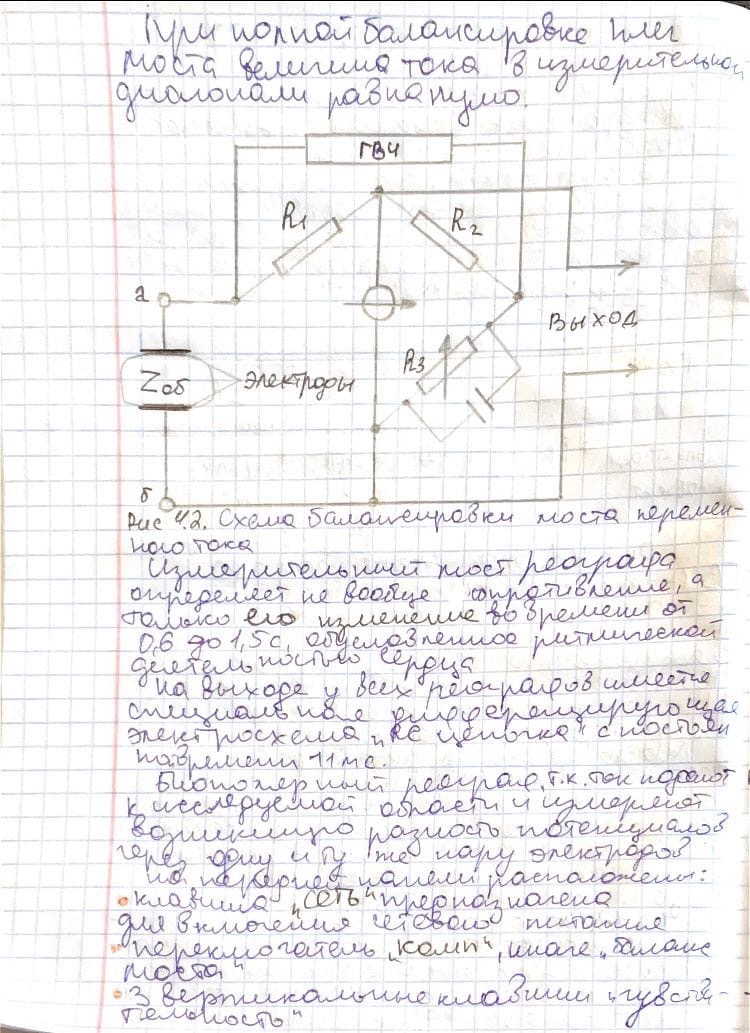 При полной балансировке плеч
моста величина тока в измерительной
диагонали равна нулю.
ГВЧ
R1
R2
а
Выход
R3
Zоб
электроды
б
Рис 4.2. Схема балансировки моста перемен-
ного тока
Измерительный мост реографа
определяет не вообще сопротивление, а
только его изменение во времени от
0,6 до 1,5с, обусловленное ритмической
деятельностью сердца
На выходе у всех реографов имеется
специальная дифференцирующая
электросхема „RC цепочка" с постоян
навремени 11мс.
Биополярный реограф, т.к. ток подают
к исследуемой области и измеряют
возникшую разность потенциалов
через одну и ту же пару электродов
на передней панели расположены:
• клавиша „сеть" предназначена
для включения сетевого питания
• переключатель „комп", иначе „баланс
моста"
• 3 вертикальные клавиши „чувстви-
тельность"